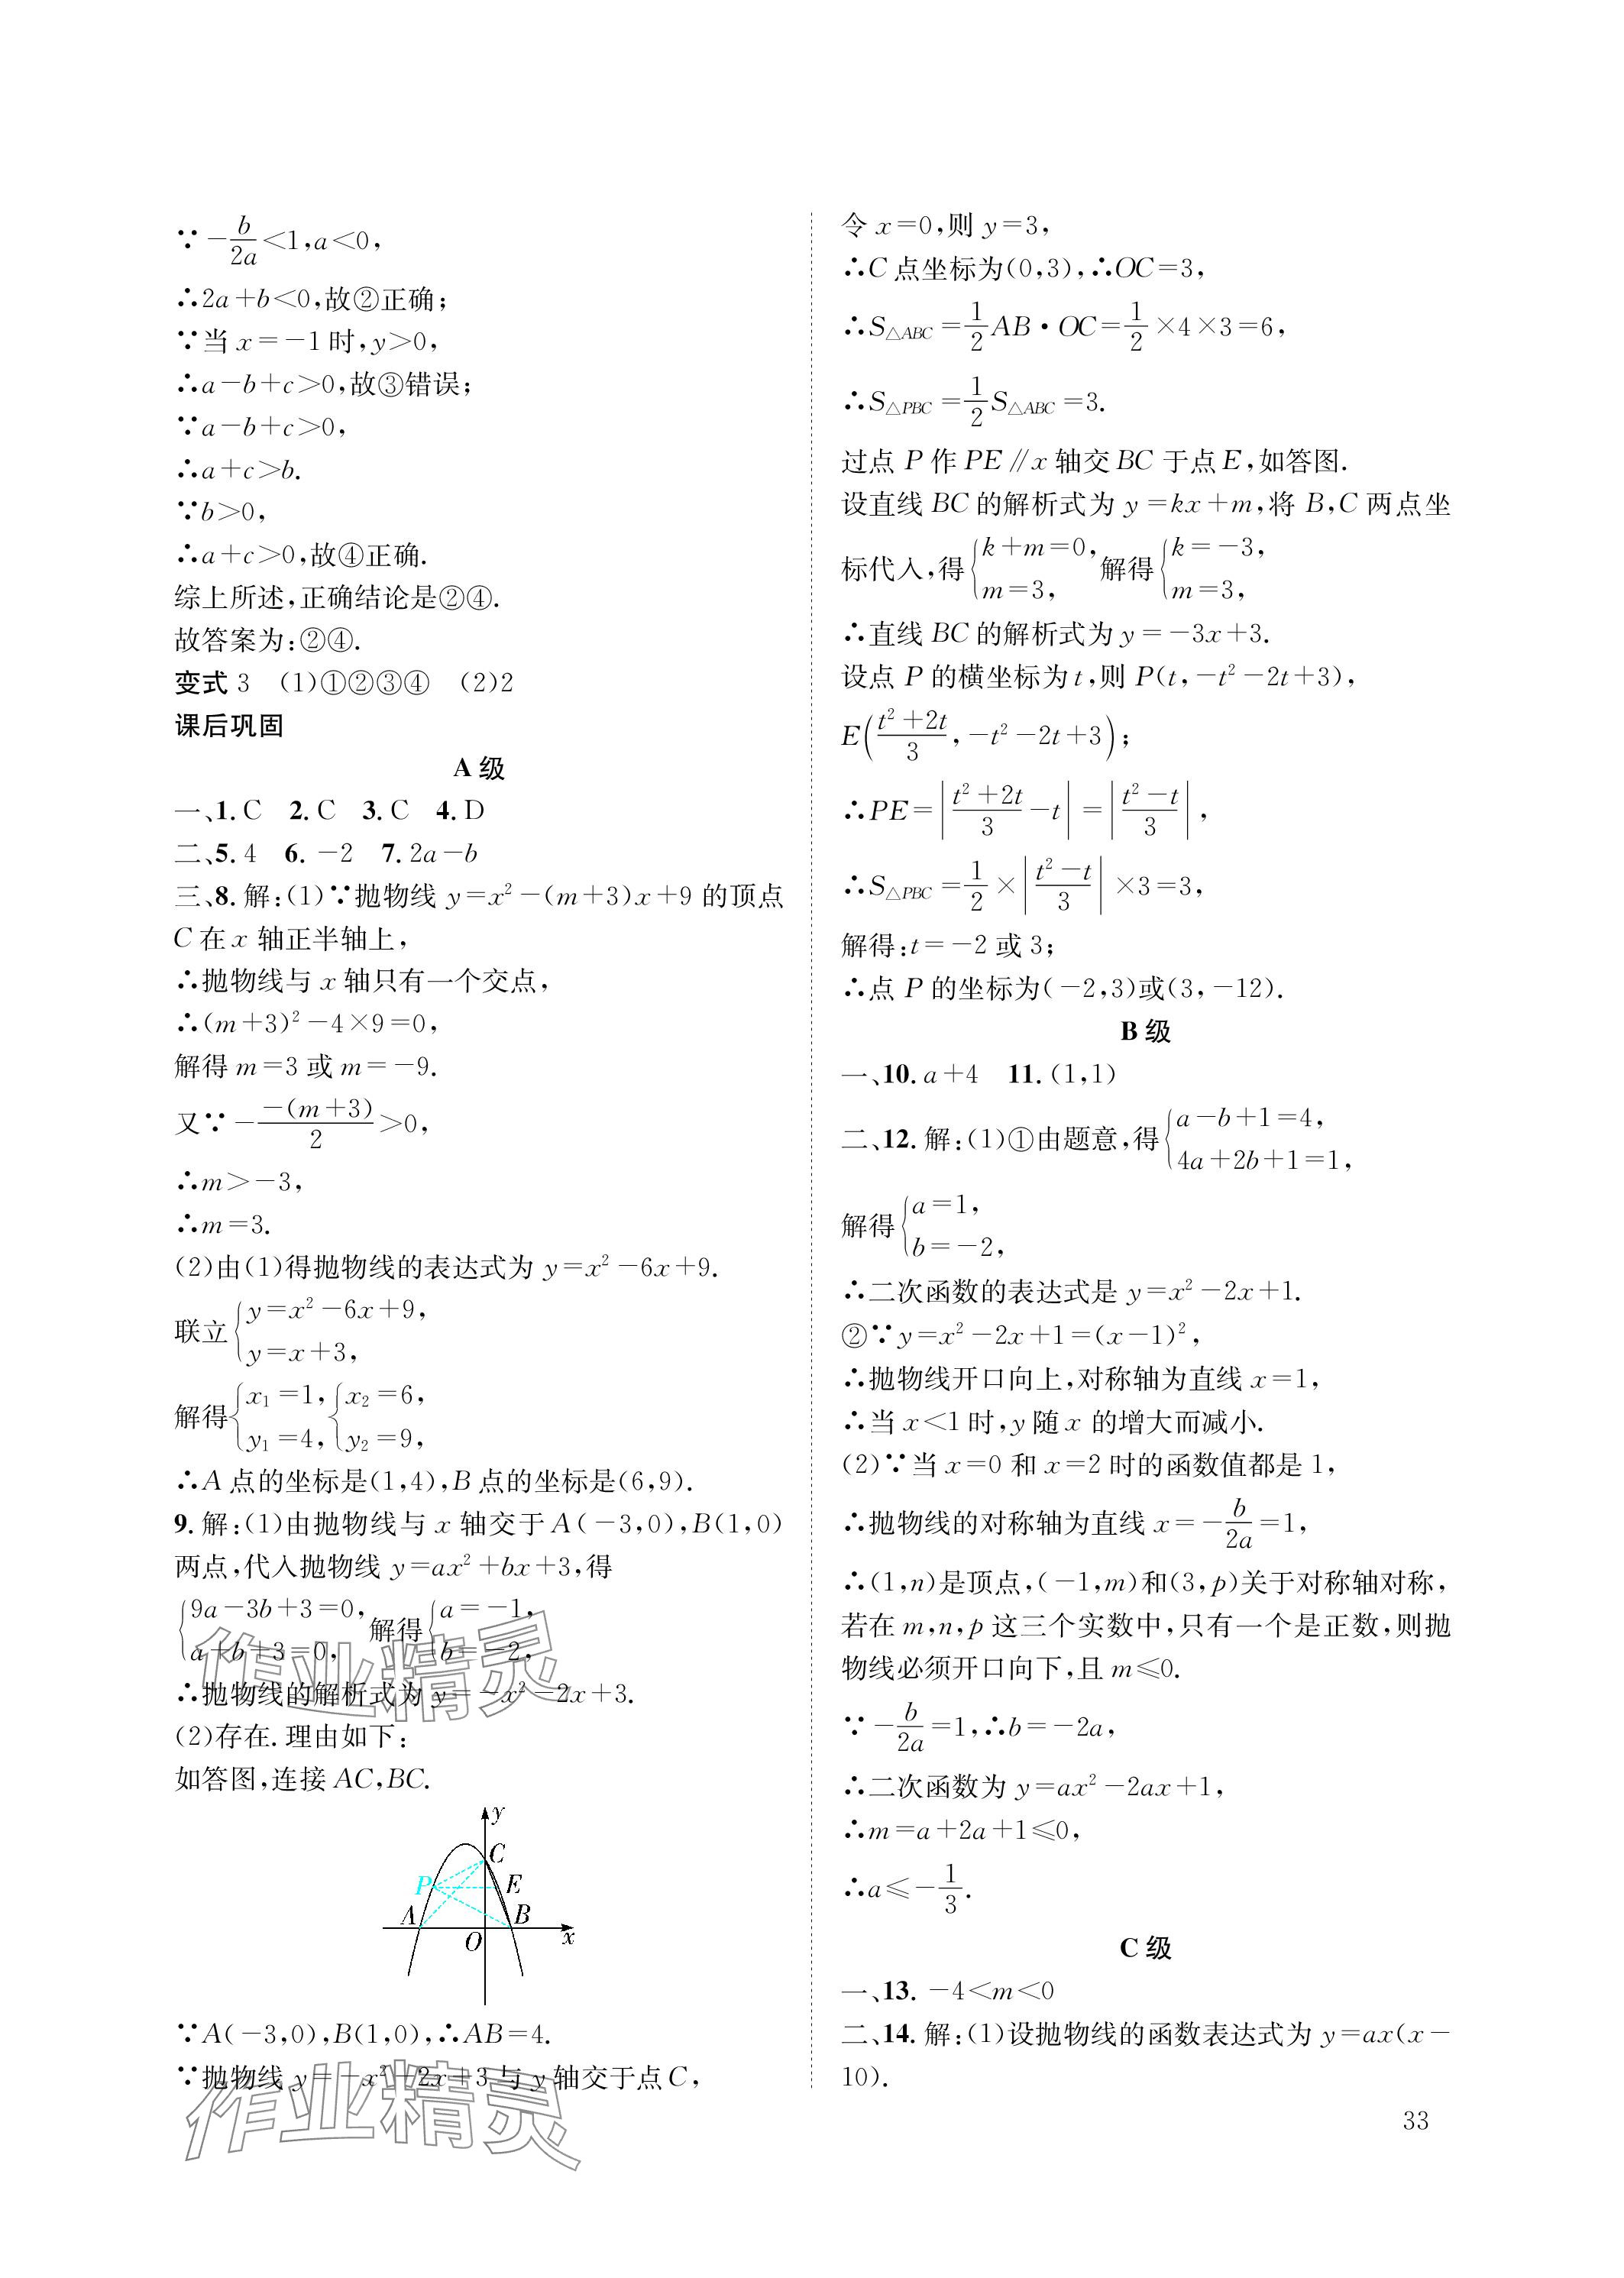 ∵ −b/2a<1,a<0,
∴2a+b<0,故②正确;
∵当 x=−1 时,y>0,
∴a−b+c>0,故③错误;
∵a−b+c>0,
∴a+c>b.
∵b>0,
∴a+c>0,故④正确.
综上所述,正确结论是②④.
故答案为:②④.
变式 3 (1)①②③④ (2)2
课后巩固
A 级
一、1. C 2. C 3. C 4. D
二、5. 4 6. −2 7. 2a−b
三、8. 解:(1)∵抛物线 y=x²−(m+3)x+9 的顶点
C 在 x 轴正半轴上,
∴抛物线与 x 轴只有一个交点,
∴(m+3)²−4×9=0,
解得 m=3 或 m=−9.
又∵ −−(m+3)/2>0,
∴m>−3,
∴m=3.
(2)由(1)得抛物线的表达式为 y=x²−6x+9.
联立{y=x²−6x+9, y=x+3,
解得{x₁=1, y₁=4, {x₂=6, y₂=9,
∴A 点的坐标是(1,4),B 点的坐标是(6,9).
9. 解:(1)由抛物线与 x 轴交于 A(−3,0),B(1,0)
两点,代入抛物线 y=ax²+bx+3,得
{9a−3b+3=0, a+b+3=0, 解得{a=−1, b=−2,
∴抛物线的解析式为 y=−x²−2x+3.
(2)存在. 理由如下:
如答图,连接 AC,BC.
y
C
P
E
A
B
O
x
∵A(−3,0),B(1,0),∴AB=4.
∵抛物线 y=−x²−2x+3 与 y 轴交于点 C,
令 x=0,则 y=3,
∴C 点坐标为(0,3),∴OC=3,
∴S△ABC=1/2AB·OC=1/2×4×3=6,
∴S△PBC=1/2S△ABC=3.
过点 P 作 PE∥x 轴交 BC 于点 E,如答图.
设直线 BC 的解析式为 y=kx+m,将 B,C 两点坐
标代入,得{k+m=0, m=3, 解得{k=−3, m=3,
∴直线 BC 的解析式为 y=−3x+3.
设点 P 的横坐标为 t,则 P(t,−t²−2t+3),
E((t²+2t)/3,−t²−2t+3);
∴PE=|(t²+2t)/3−t|=|(t²−t)/3|,
∴S△PBC=1/2×|(t²−t)/3|×3=3,
解得:t=−2 或 3;
∴点 P 的坐标为(−2,3)或(3,−12).
B 级
一、10. a+4 11. (1,1)
二、12. 解:(1)①由题意,得{a−b+1=4, 4a+2b+1=1,
解得{a=1, b=−2,
∴二次函数的表达式是 y=x²−2x+1.
②∵y=x²−2x+1=(x−1)²,
∴抛物线开口向上,对称轴为直线 x=1,
∴当 x<1 时,y 随 x 的增大而减小.
(2)∵当 x=0 和 x=2 时的函数值都是 1,
∴抛物线的对称轴为直线 x=−b/2a=1,
∴(1,n)是顶点,(−1,m)和(3,p)关于对称轴对称,
若在 m,n,p 这三个实数中,只有一个是正数,则抛
物线必须开口向下,且 m⩽0.
∵ −b/2a=1,∴b=−2a,
∴二次函数为 y=ax²−2ax+1,
∴m=a+2a+1⩽0,
∴a⩽−1/3.
C 级
一、13. −4<m<0
二、14. 解:(1)设抛物线的函数表达式为 y=ax(x−
10).
33
作业精灵
作业精灵